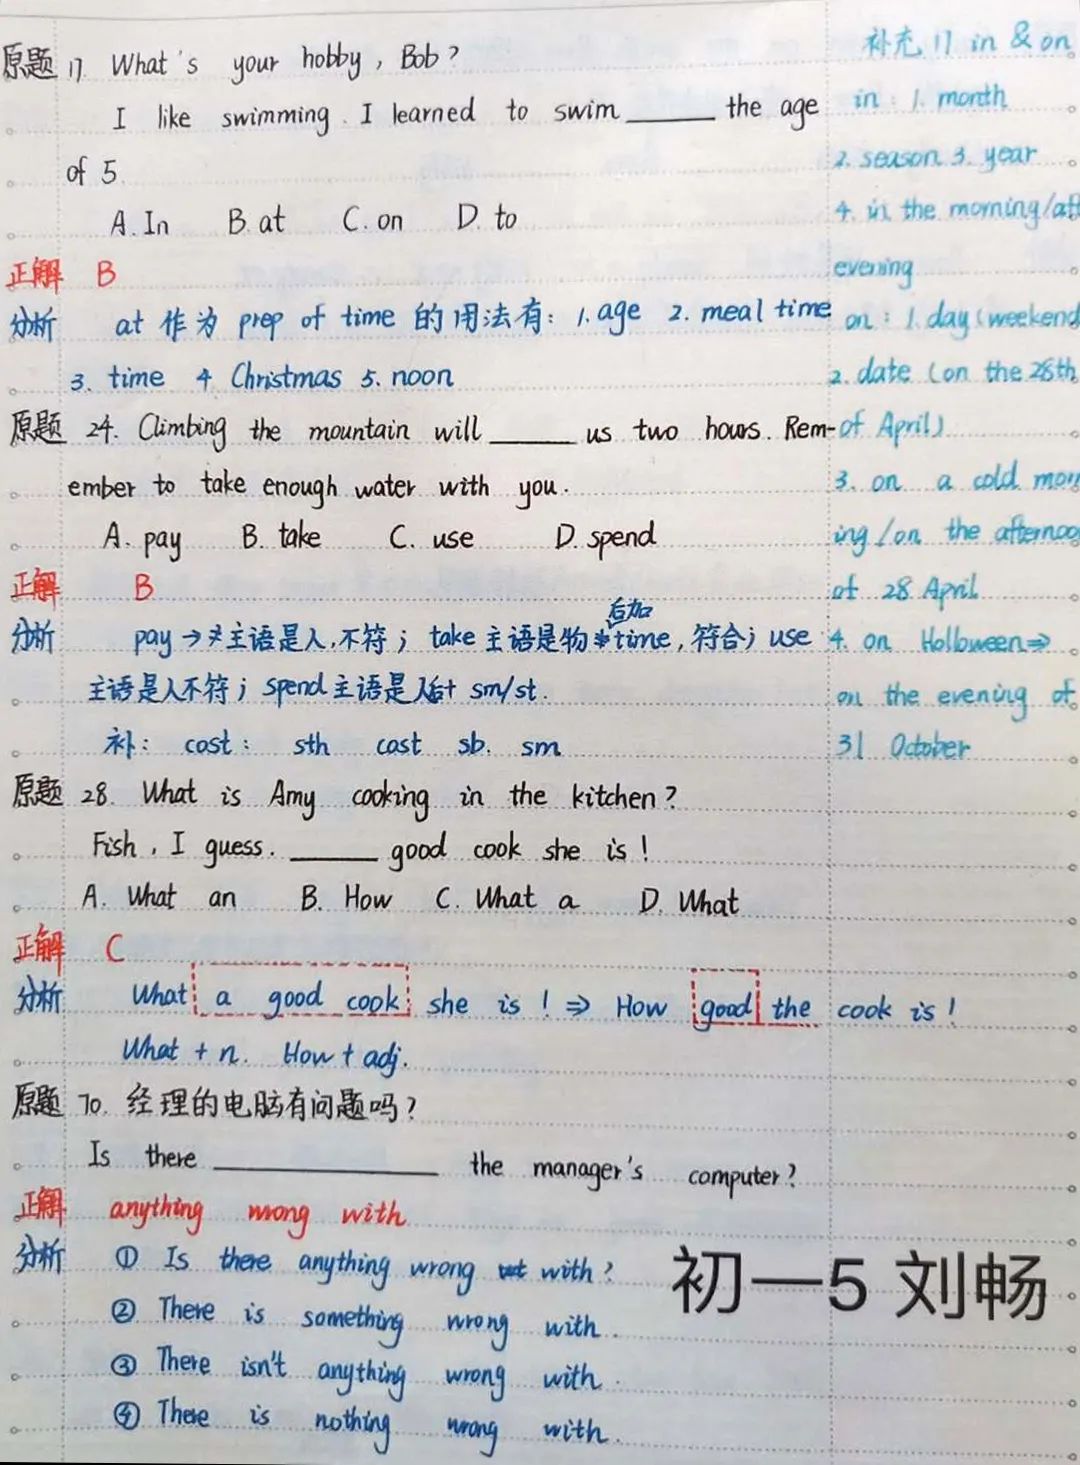 原题 17. What's your hobby, Bob?
I like swimming. I learned to swim ______ the age
of 5.
A. In B. at C. on D. to
正解 B
分析 at 作为 prep of time 的用法有: 1. age 2. meal time
3. time 4 Christmas 5. noon
原题 24. Climbing the mountain will ______ us two hours. Rem-
ember to take enough water with you.
A. pay B. take C. use D. spend
正解 B
后加
分析 pay → 主语是人, 不符; take 主语是物 time, 符合; use
主语是人不符; spend 主语是人后+ sm/st.
补: cost: sth cost sb. sm
原题 28. What is Amy cooking in the kitchen?
Fish, I guess. ______ good cook she is!
A. What an B. How C. What a D. What
正解 C
分析 What a good cook she is! ⇒ How good the cook is!
What + n. How + adj.
原题 70. 经理的电脑有问题吗?
Is there ____________ the manager's computer?
正解 anything wrong with
分析 ① Is there anything wrong with?
② There is something wrong with.
③ There isn't anything wrong with.
④ There is nothing wrong with.
补充 17 in & on
in: 1. month
2. season 3. year
4. in the morning/aft
evening
on: 1. day (weekend
2. date (on the 28th
of April)
3. on a cold mor
ing/on the afternoo
of 28 April
4. on Holloween ⇒
on the evening of
31 October
初一5 刘畅